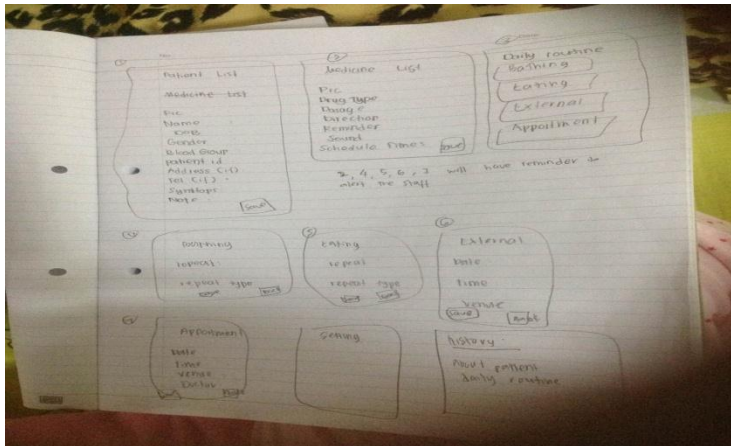 ①
Patient List
Medicine List
Pic
Name
DOB
Gender
Blood Group
patient id
Address
Note
Save
②
Medicine List
Pic
Drug Type
Dosage
Direction
Reminder
Sound
Schedule times
Save
③
Daily routine
Bathing
Eating
External
Appoitment
2, 4, 5, 6, 7 will have reminder to
alert the staff
④
repeat
repeat type
⑤
Eating
repeat
repeat type
⑥
External
Date
Time
Venue
Save
Appointment
Date
Time
Venue
Doctor
Setting
history
About patient
daily routine